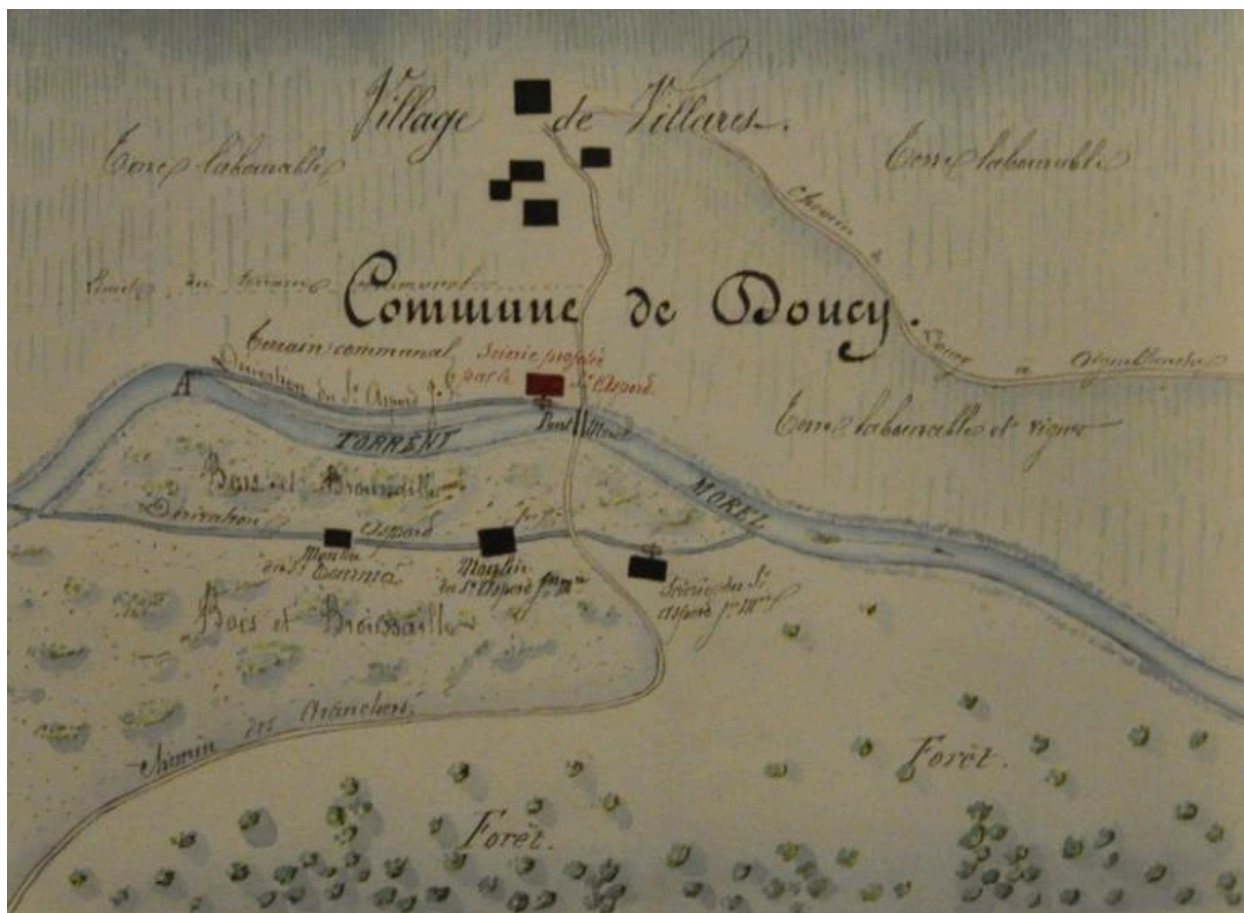 Village de Villares.
Terre labourable
Terre labourable
Chemin de Doucy a Aigueblanche
Limite du terrain communal
Commune de Doucy.
Terrain communal
Scierie projetée
par le Sr Aspord.
Dérivation du Sr Aspord
A
TORRENT
Pont Morel
Terre labourable et vignes
MOREL
Bois et Broussailles
Dérivation Aspord
Moulin
du Sr
Moulin
du Sr Aspord
Scierie du Sr
Aspord
Bois et Broussailles
Chemin des Avanchers
Forêt.
Forêt.